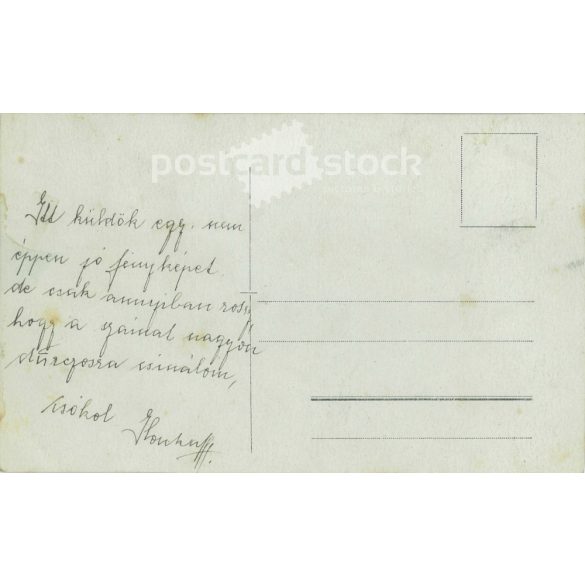 postcard stock
Itt küldök egy nem
éppen jó fényképet
de csak annyiban rossz,
hogy a számat nagyon
csinálom,
csókol